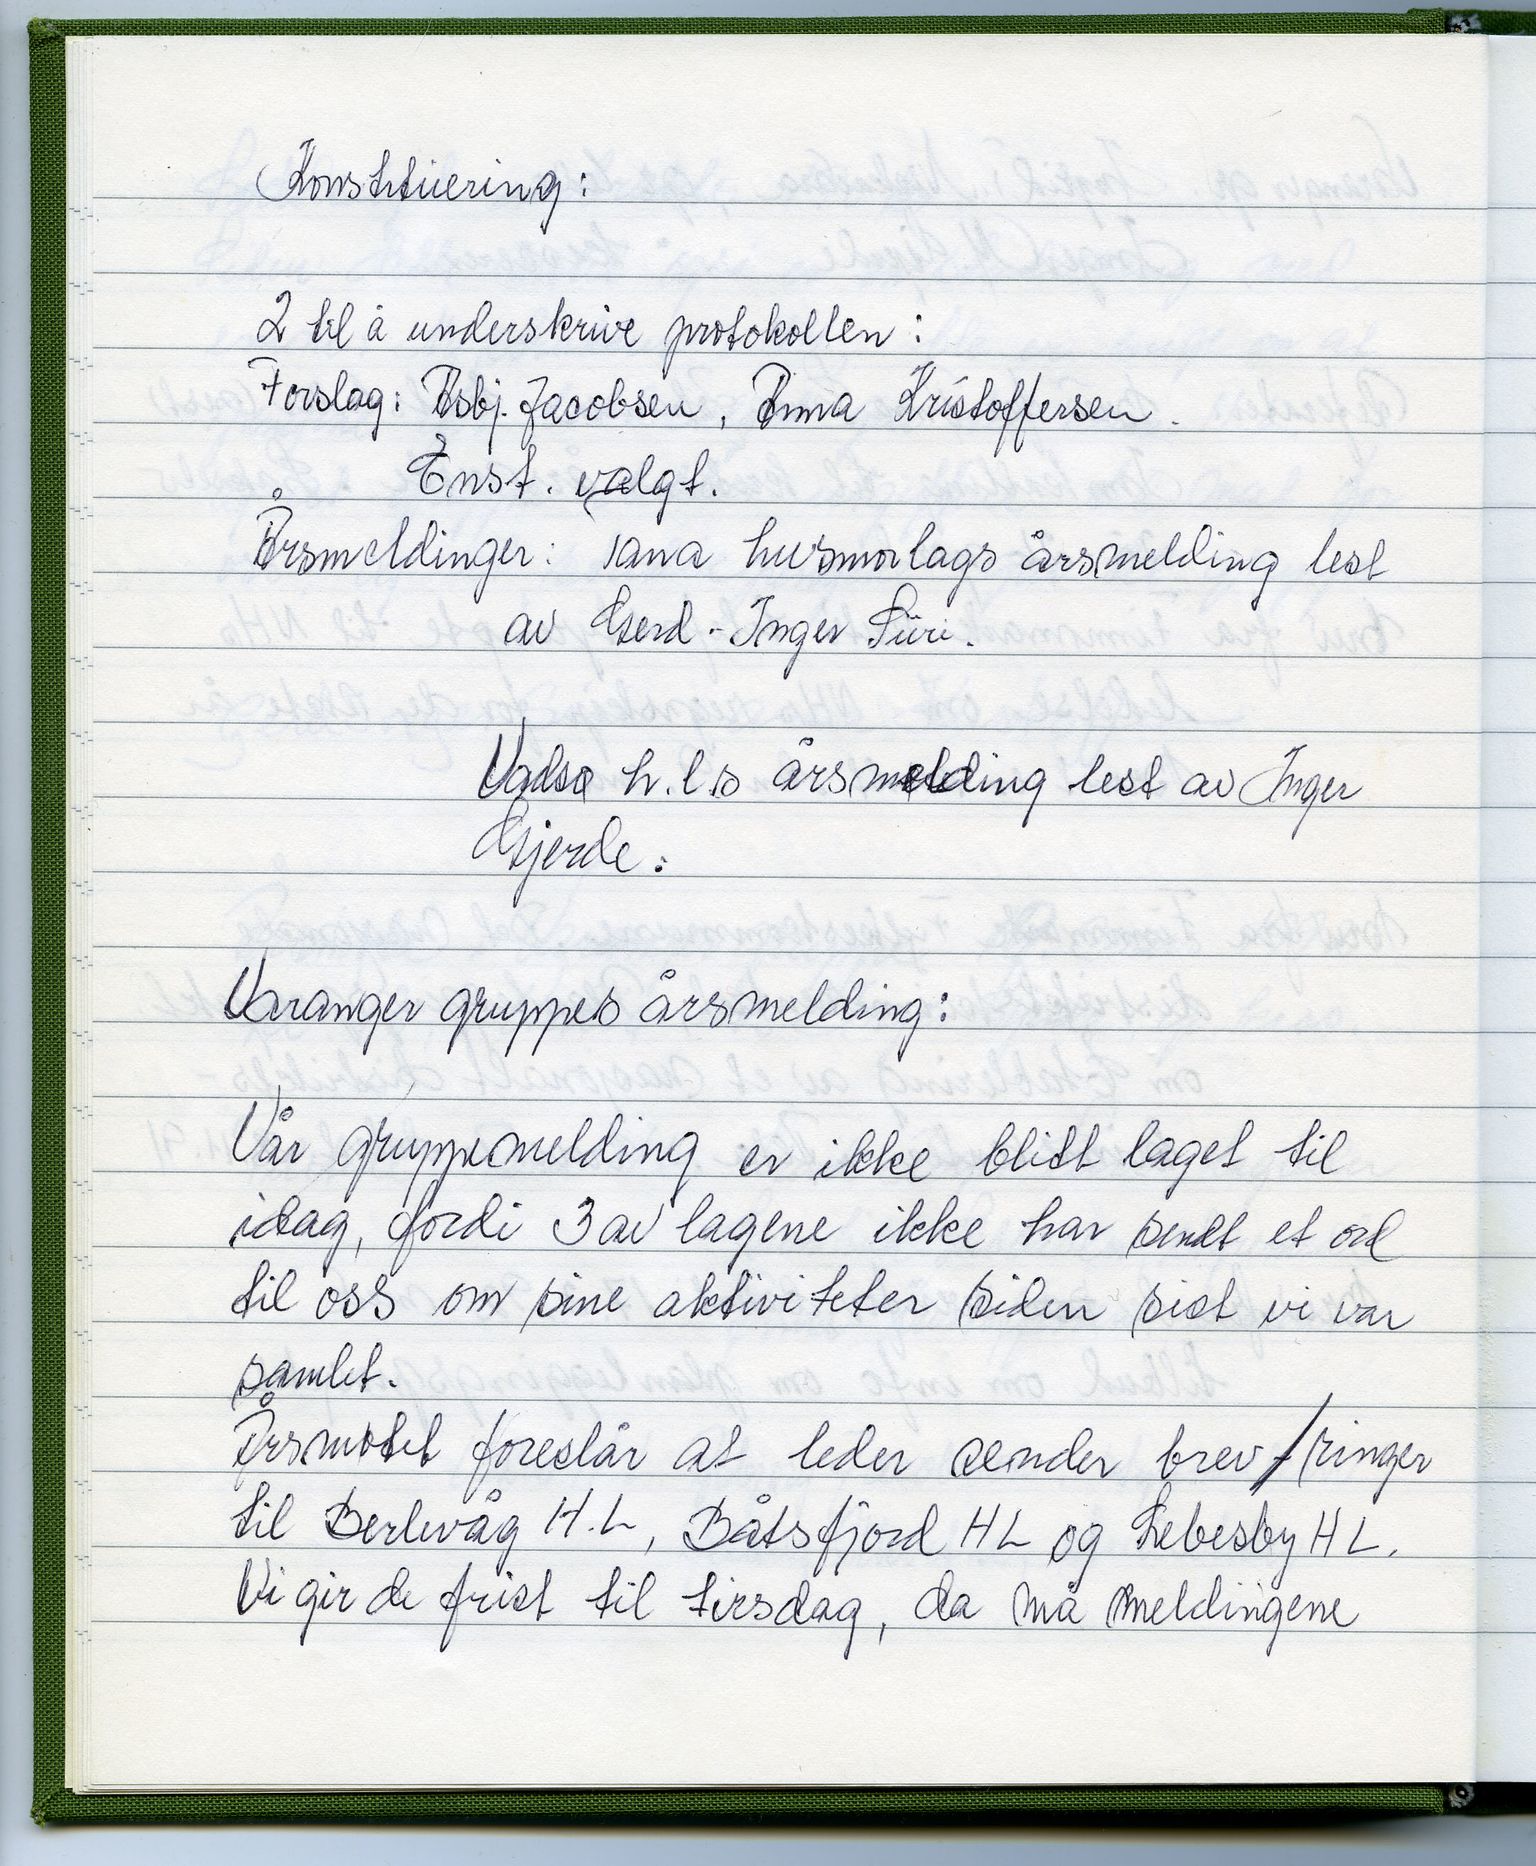 Konstituering:
2 til å underskrive protokollen:
Forslag: Asbj. Jacobsen, Anna Kristoffersen.
Enst. valgt.
Årsmeldinger: Tana husmorlags årsmelding lest
av Gerd-Inger Siiri.
Vadsø h.l.s årsmelding lest av Inger
Gjerde.
Varanger gruppes årsmelding:
Vår gruppemelding er ikke blidt laget til
idag, fordi 3 av lagene ikke har sendt et ord
til oss om sine aktiviteter siden sist vi var
samlet.
Årsmøtet foreslår at leder sender brev/ringer
til Berlevåg H.L, Båtsfjord HL og Lebesby HL.
Vi gir de frist til tirsdag, da må meldingene